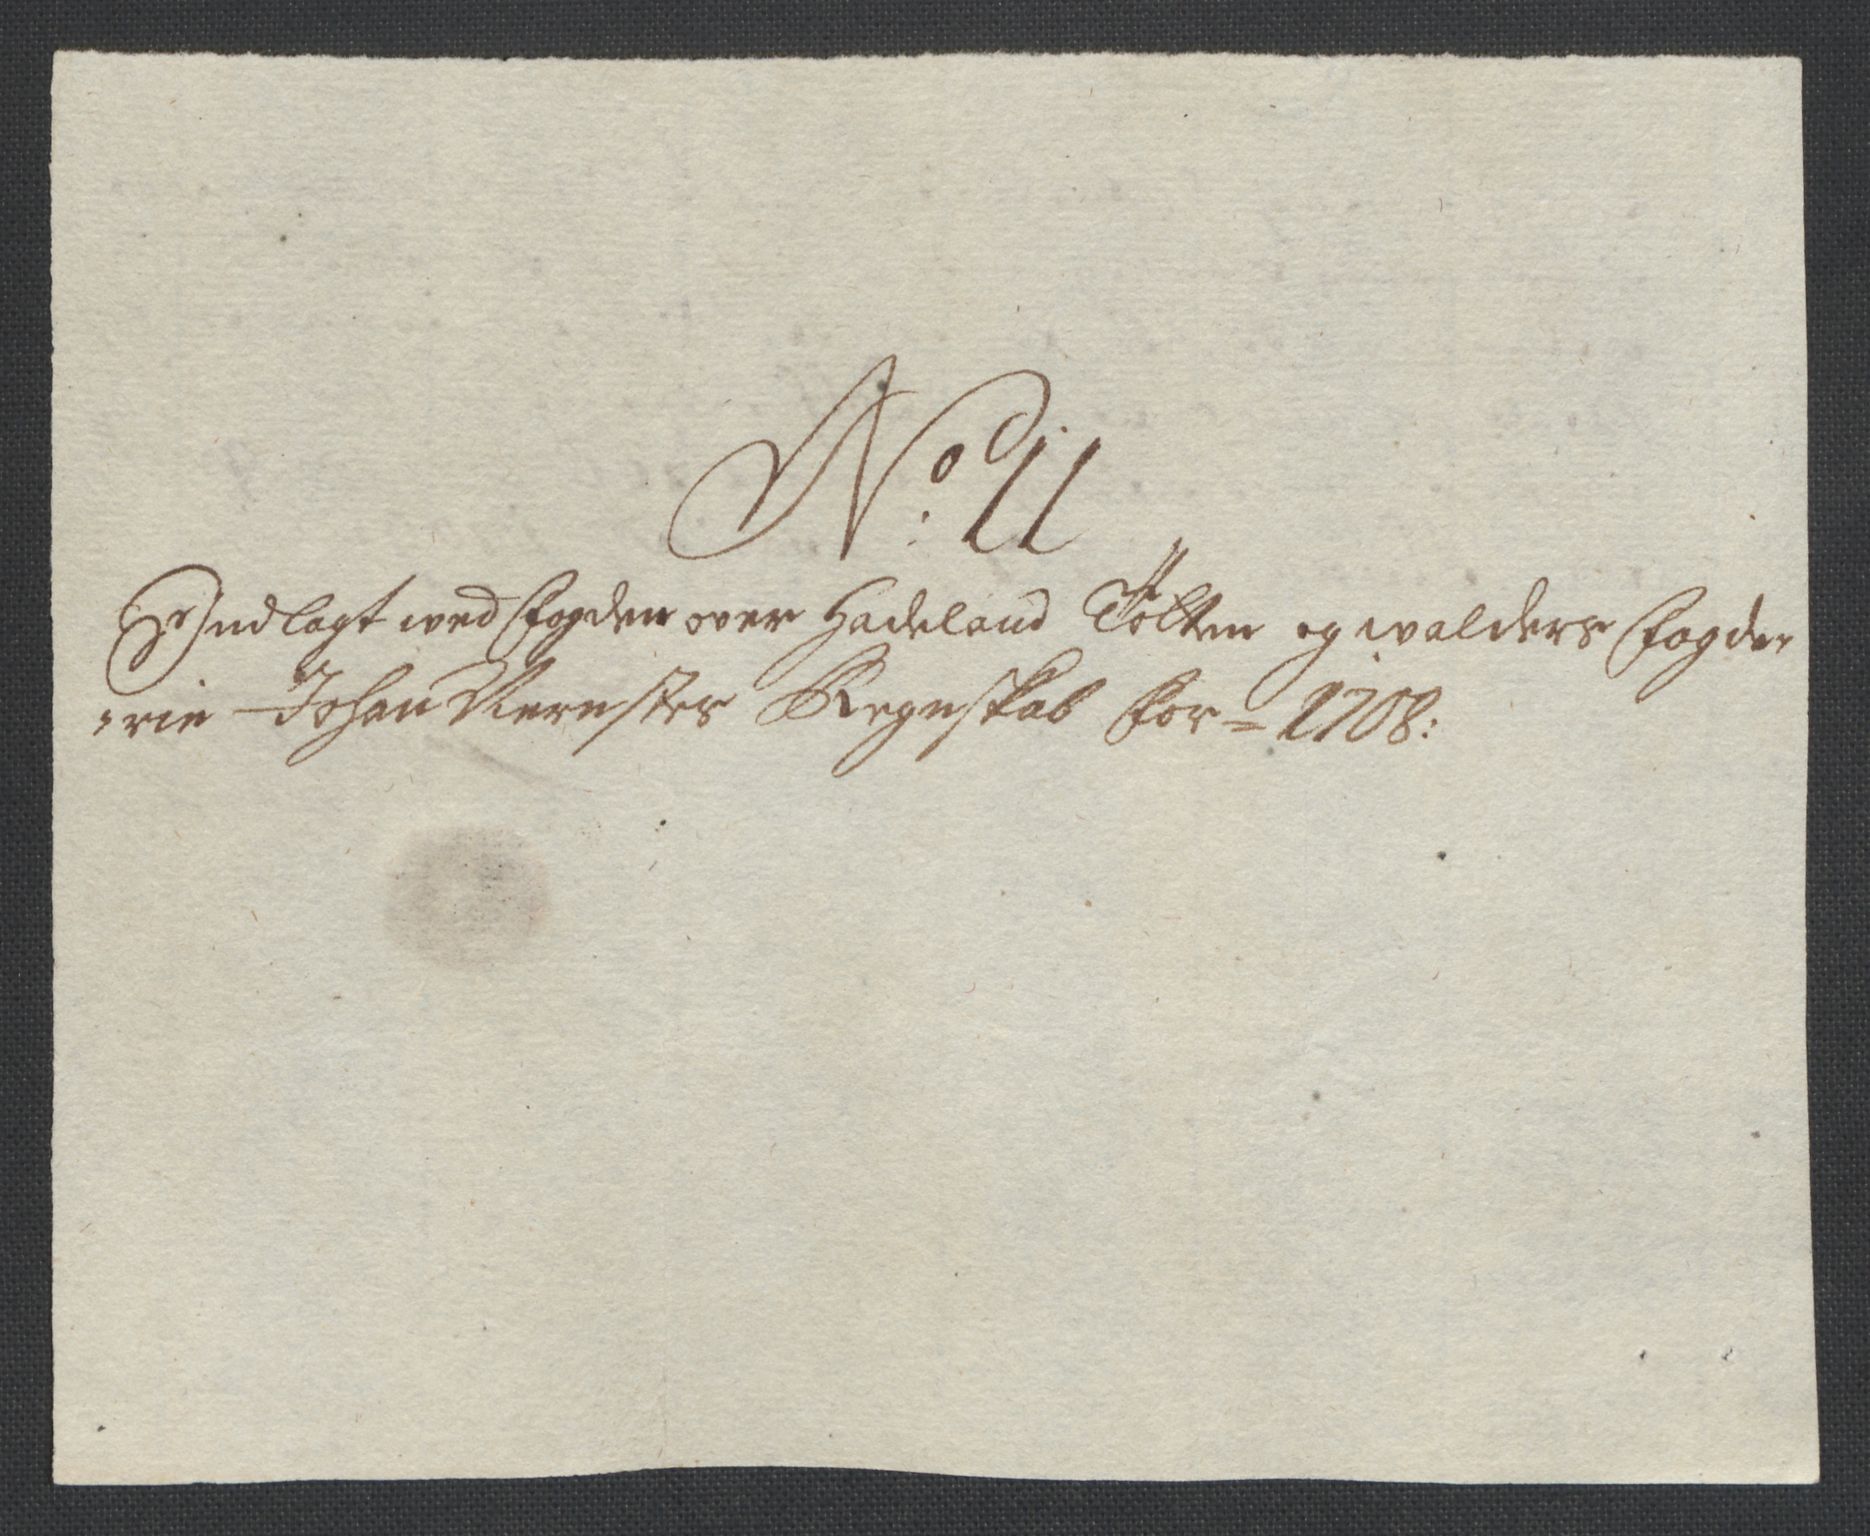 No: 11
Indlagt wed fogden over Hadeland Tötten og walders fogde-
rie Johan Mernstes Regnskab for = 1708: